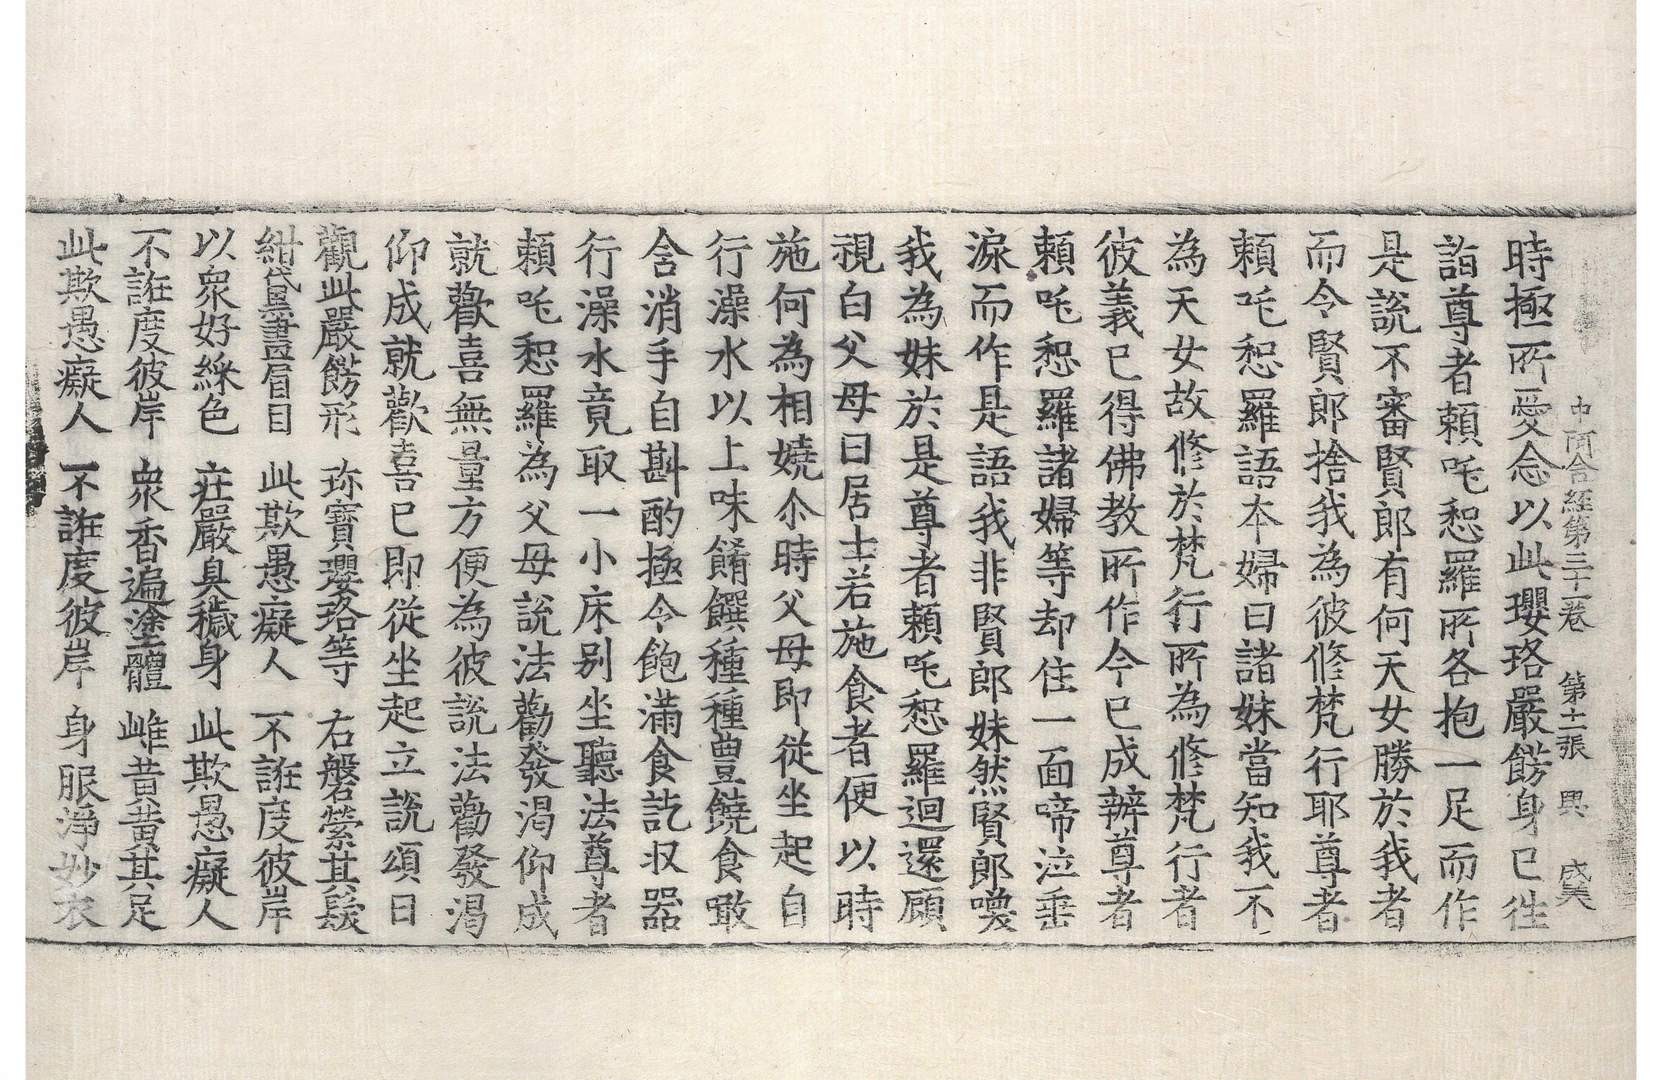 中阿含經第三十一卷　第十一張　興　成美
時極所愛念以此瓔珞嚴飾身已徃
詣尊者賴吒惒羅所各抱一足而作
是說不審賢郎有何天女勝於我者
而令賢郎捨我為彼修梵行耶尊者
賴吒惒羅語夲婦曰諸妹當知我不
為天女故修於梵行所為修梵行者
彼義已得佛教所作今已成辨尊者
賴吒惒羅諸婦等却住一面啼泣垂
淚而作是語我非賢郎妹然賢郎喚
我為妹於是尊者賴吒惒羅迴還顧
視白父母曰居士若施食者便以時
施何為相嬈尒時父母即從坐起自
行澡水以上味餚饌種種豊饒食噉
含消手自斟酌極令飽滿食訖収器
行澡水竟取一小床别坐聽法尊者
賴吒惒羅為父母說法勸發渴仰成
就歡喜無量方便為彼說法勸發渴
仰成就歡喜已即從坐起立說頌曰
觀此嚴飾形　珎寶瓔珞等　右磐縈其髮
紺黛畫眉目　此欺愚癡人　不誑度彼岸
以衆好綵色　莊嚴臭穢身　此欺愚癡人
不誑度彼岸　衆香遍塗體　雌黄黄其足
此欺愚癡人　不誑度彼岸　身服淨妙衣